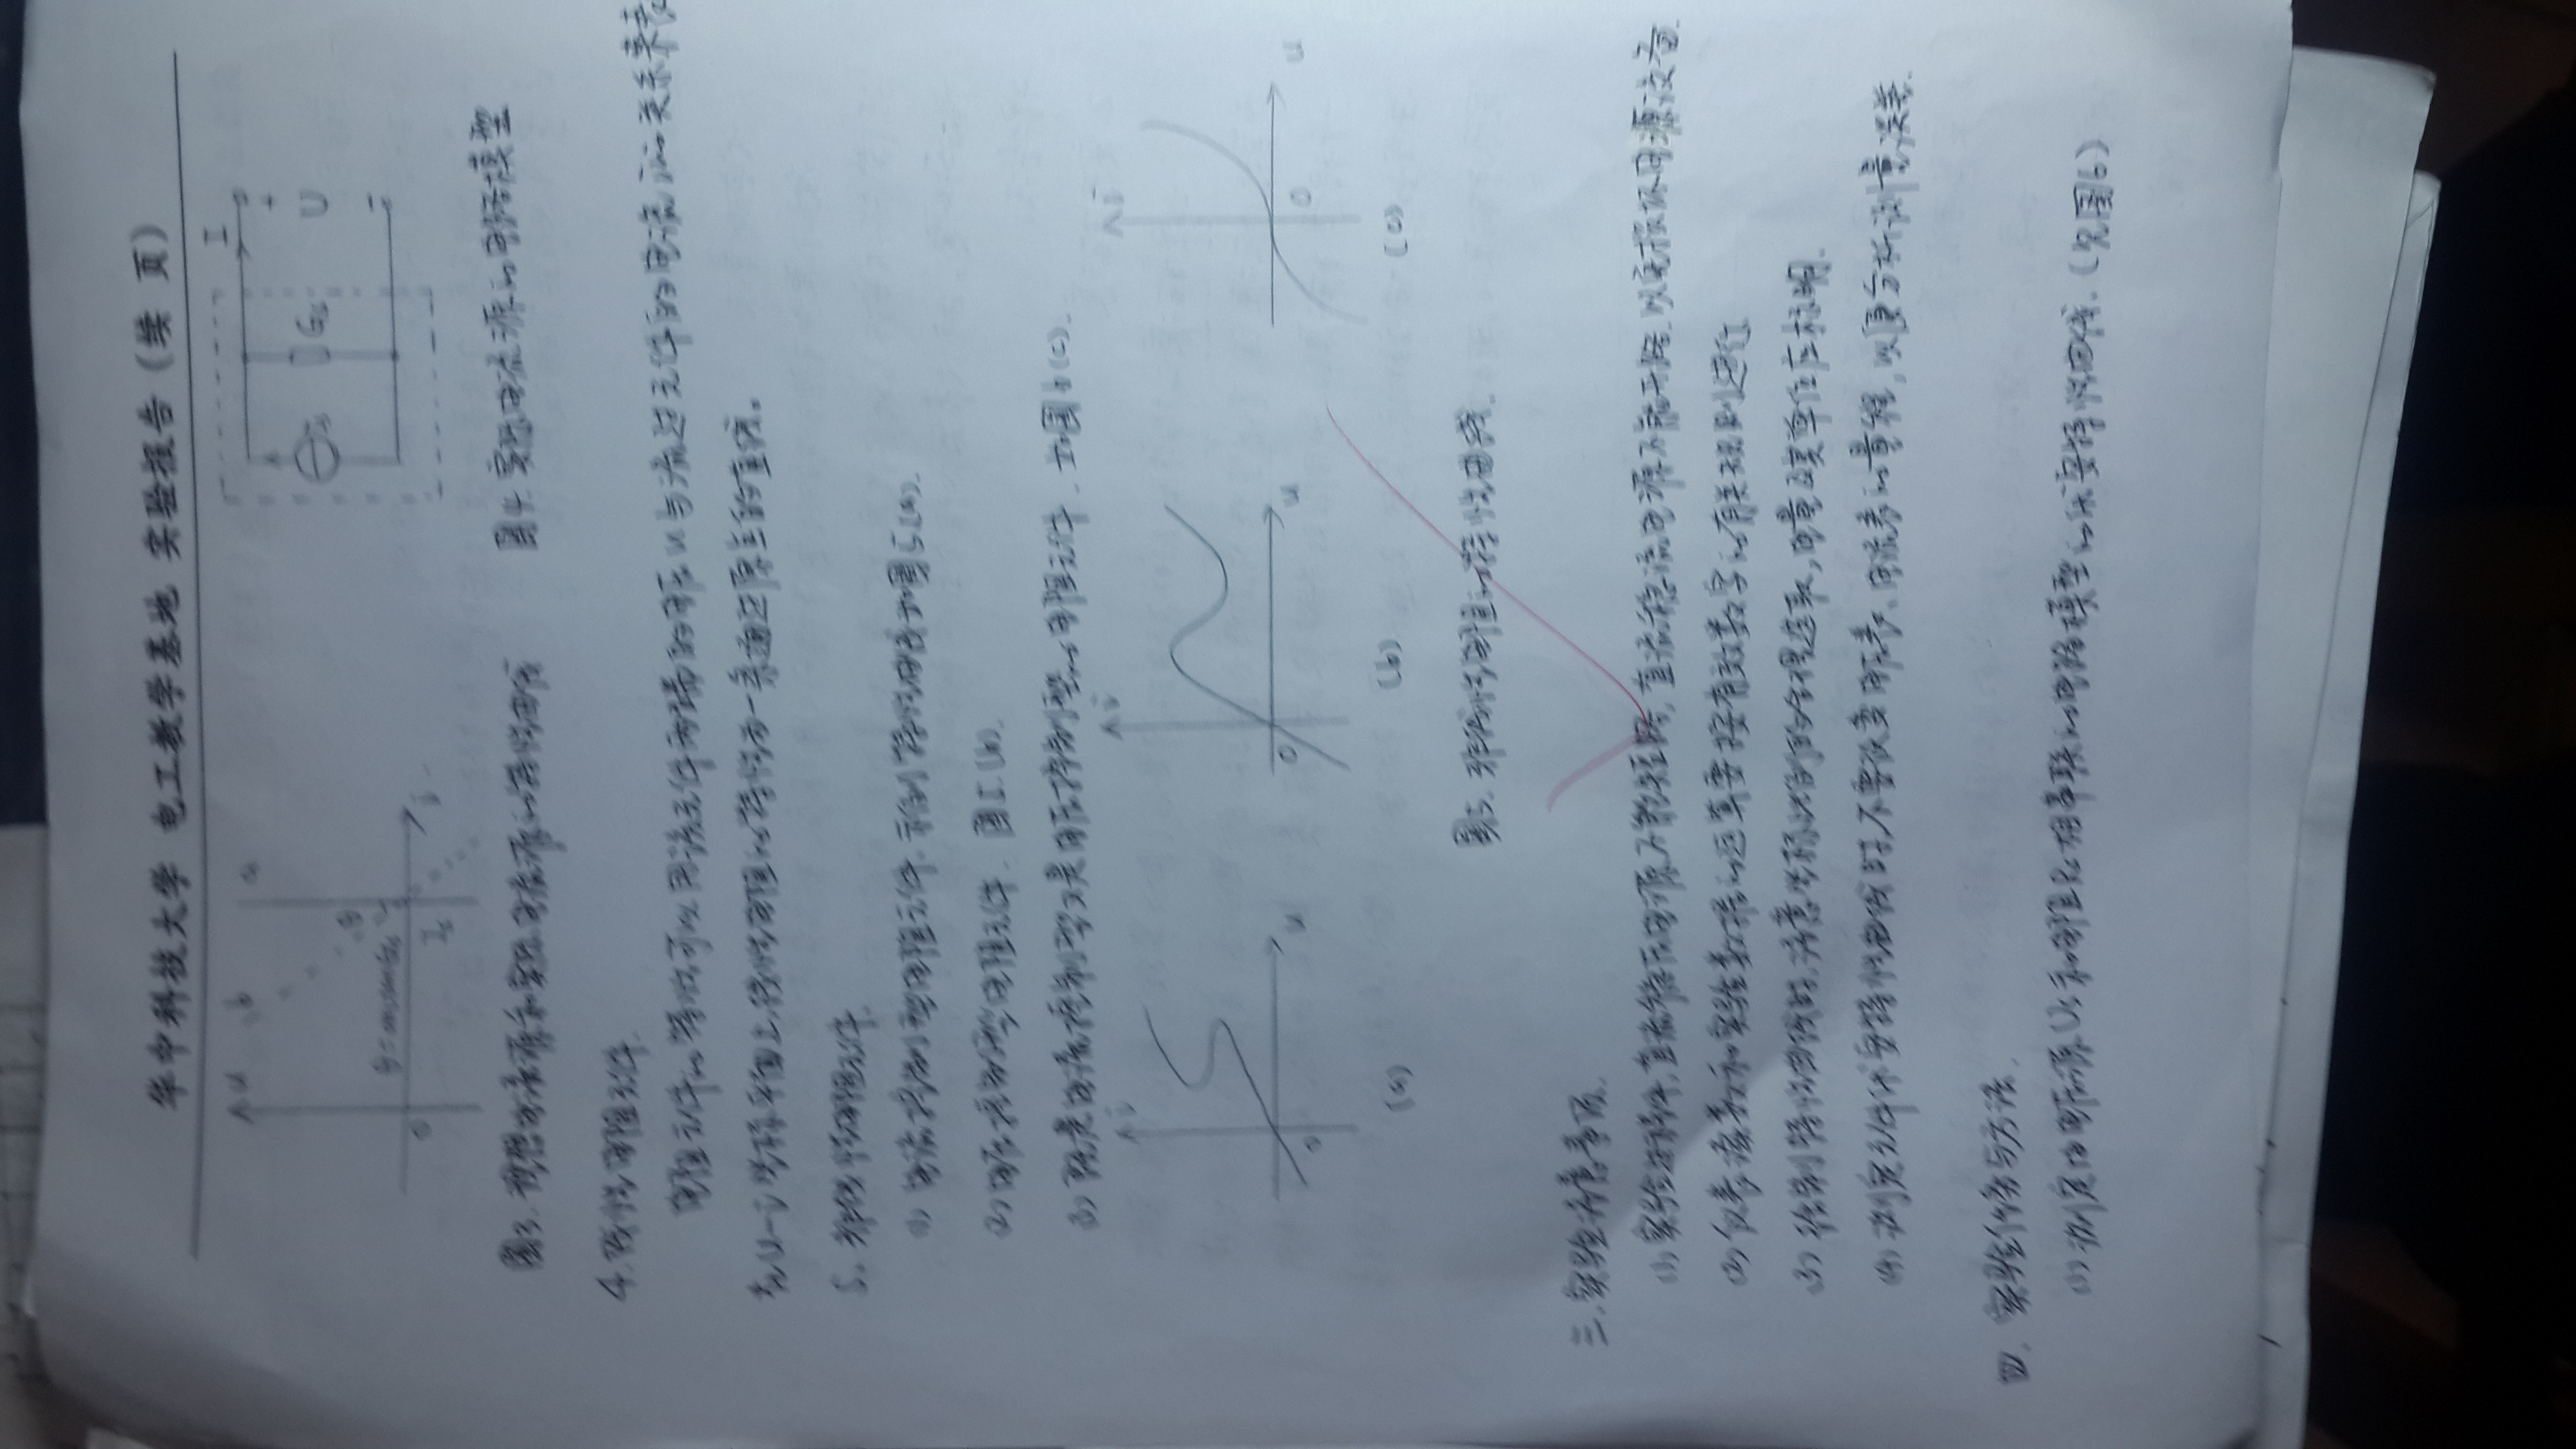 华中科技大学 电工教学基地 实验报告（续 页）
u b a
I
θ
Is Gs U
θ=arctanGs
0 Is i
图3. 理想电流源和实际电流源的特性曲线 图4. 实际电流源的电路模型
4. 线性电阻元件.
电阻元件的特性可以用该元件两端的电压u与流过元件的电流i的关系来表
在u-i坐标平面上,线性电阻的特性为一条通过原点的直线。
5. 非线性电阻元件.
(1) 电流控制型电阻元件. 特性曲线如图5(a).
(2) 电压控制型电阻元件. 图5.(b).
(3) 既是电流控制型又是电压控制型的电阻元件. 如图6(c).
i i i
0 u 0 u 0 u
(a) (b) (c)
图5. 非线性电阻的特性曲线.
三. 实验注意事项.
(1) 实验过程中,直流稳压电源不能短路,直流稳流电源不能开路.以免损坏电源设备.
(2) 仪表读数和实验数据的运算要按有效数字的有关规则进行
(3) 绘制特性曲线时,注意坐标比例的合理选取,电量及其单位应标明.
(4) 测定元件伏安特性曲线时,不要改变电压表、电流表的量程,以便分析测量误差.
四. 实验任务与方法.
(1) 测定由电压源Us和电阻Rs相串联的电路模型的伏安特性曲线.(见图6)